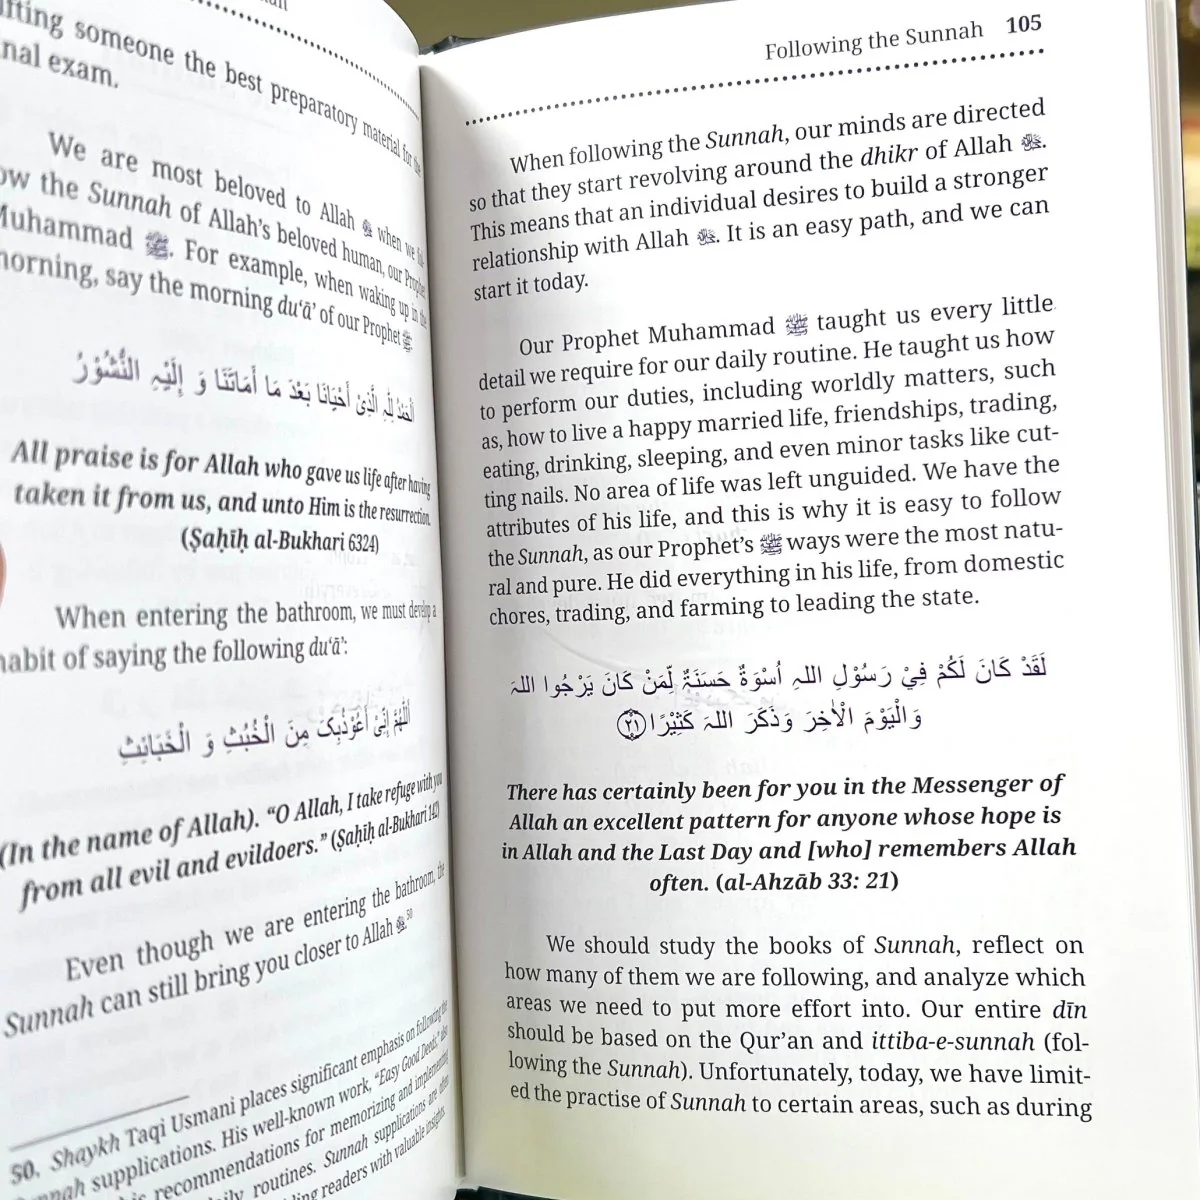 ifting someone the best preparatory material for the
nal exam.
We are most beloved to Allah ﷻ when we fol-
ow the Sunnah of Allah’s beloved human, our Prophet
Muhammad ﷺ. For example, when waking up in the
morning, say the morning du‘ā’ of our Prophet ﷺ:
اَلْحَمْدُ لِلّٰہِ الَّذِیْ أَحْیَانَا بَعْدَ مَا أَمَاتَنَا وَ إِلَیْہِ النُّشُوْرُ
All praise is for Allah who gave us life after having
taken it from us, and unto Him is the resurrection.
(Ṣaḥīḥ al-Bukhari 6324)
When entering the bathroom, we must develop a
habit of saying the following du‘ā’:
اَللّٰھُمَّ إِنِّیْ أَعُوْذُبِکَ مِنَ الْخُبُثِ وَ الْخَبَائِثِ
(In the name of Allah). “O Allah, I take refuge with you
from all evil and evildoers.” (Ṣaḥīḥ al-Bukhari 142)
Even though we are entering the bathroom, the
Sunnah can still bring you closer to Allah ﷻ.50
50. Shaykh Taqi Usmani places significant emphasis on following the
Sunnah supplications. His well-known work, “Easy Good Deeds,” also
recommendations for memorizing and implementing
routines. Sunnah supplications are often
readers with valuable insights.
Following the Sunnah 105
When following the Sunnah, our minds are directed
so that they start revolving around the dhikr of Allah ﷻ.
This means that an individual desires to build a stronger
relationship with Allah ﷻ. It is an easy path, and we can
start it today.
Our Prophet Muhammad ﷺ taught us every little
detail we require for our daily routine. He taught us how
to perform our duties, including worldly matters, such
as, how to live a happy married life, friendships, trading,
eating, drinking, sleeping, and even minor tasks like cut-
ting nails. No area of life was left unguided. We have the
attributes of his life, and this is why it is easy to follow
the Sunnah, as our Prophet’s ﷺ ways were the most natu-
ral and pure. He did everything in his life, from domestic
chores, trading, and farming to leading the state.
لَقَدْ کَانَ لَکُمْ فِيْ رَسُوْلِ اللہِ اُسْوَۃٌ حَسَنَۃٌ لِّمَنْ کَانَ یَرْجُوا اللہَ
وَالْیَوْمَ الْاٰخِرَ وَذَکَرَ اللہَ کَثِیْرًا ﴿۲۱﴾
There has certainly been for you in the Messenger of
Allah an excellent pattern for anyone whose hope is
in Allah and the Last Day and [who] remembers Allah
often. (al-Ahzāb 33: 21)
We should study the books of Sunnah, reflect on
how many of them we are following, and analyze which
areas we need to put more effort into. Our entire dīn
should be based on the Qur’an and ittiba-e-sunnah (fol-
lowing the Sunnah). Unfortunately, today, we have limit-
ed the practise of Sunnah to certain areas, such as during